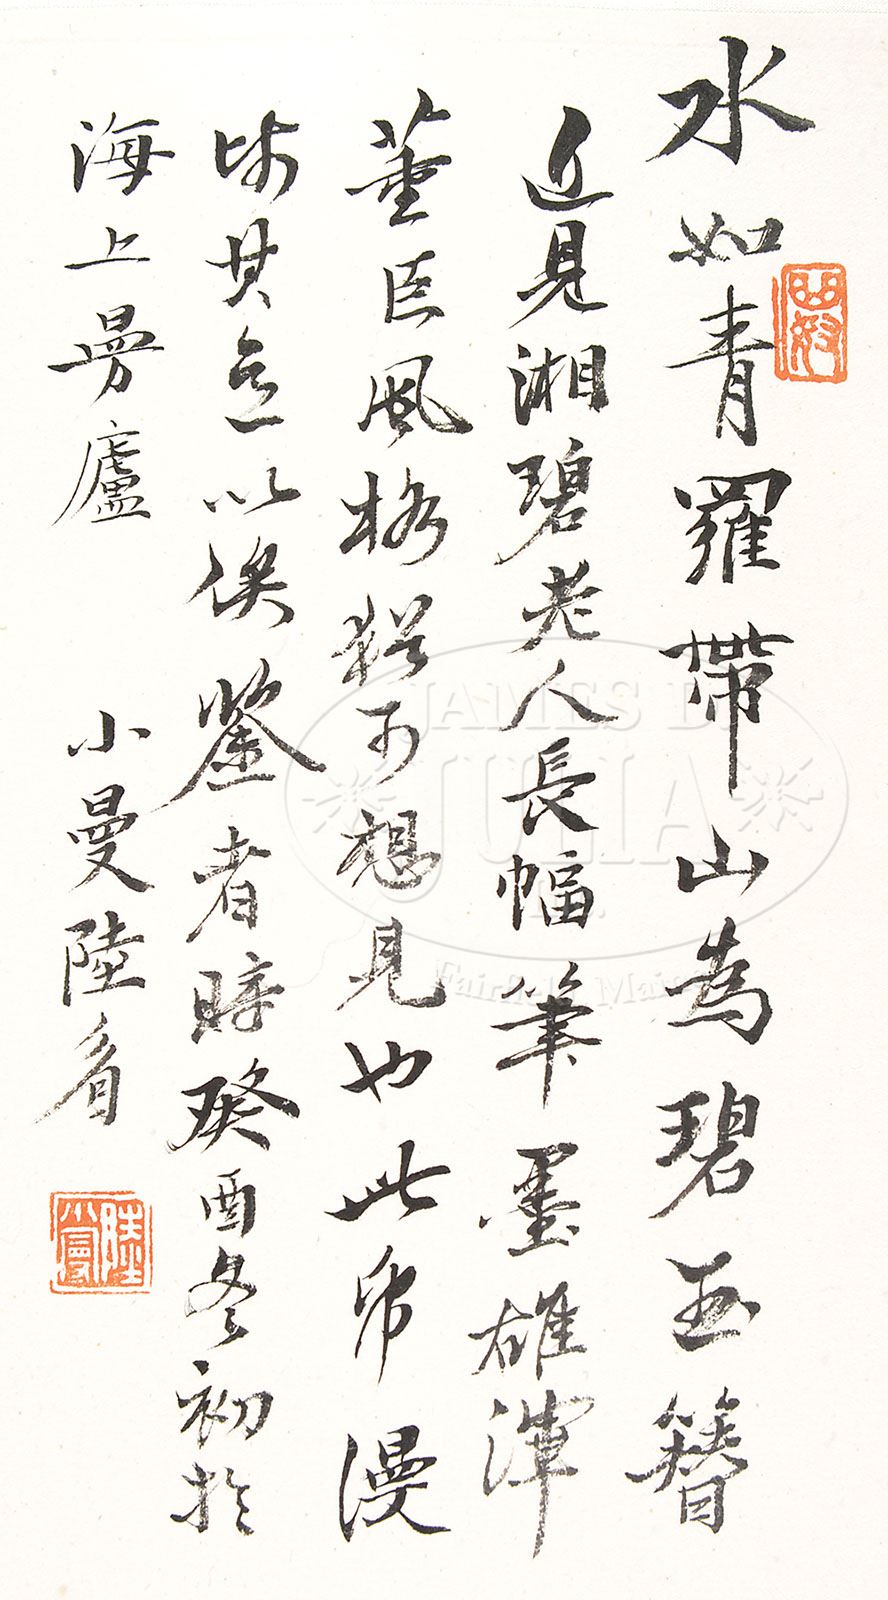 水如青羅帶山為碧玉簪
近見湘碧老人長幅筆墨雄渾
董巨風格猶可想見也此帋漫
師其意以俟鑒者時癸酉冬初於
海上曼廬
小曼陸眉
陸小曼
JAMES D.
JULIA
Fairfield, Maine